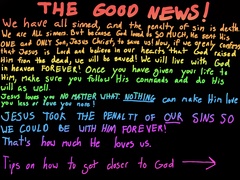 THE GOOD NEWS!
We have all sinned, and the penalty of sin is death.
We are ALL sinners. But because God loved us SO MUCH, He sent His
ONE and ONLY Son, Jesus Christ, to save us! Now, if we openly confess
that Jesus is Lord and believe in our hearts that God raised
Him from the dead, we will be saved! We will live with God
in heaven FOREVER! Once you have given your life to
Him, make sure you follow His commands and do His
will as well.
Jesus loves you NO MATTER WHAT. NOTHING can make Him love
you less or love you more!
JESUS TOOK THE PENALTY OF OUR SINS SO
WE COULD BE WITH HIM FOREVER!
That's how much He loves us.
Tips on how to get closer to God →